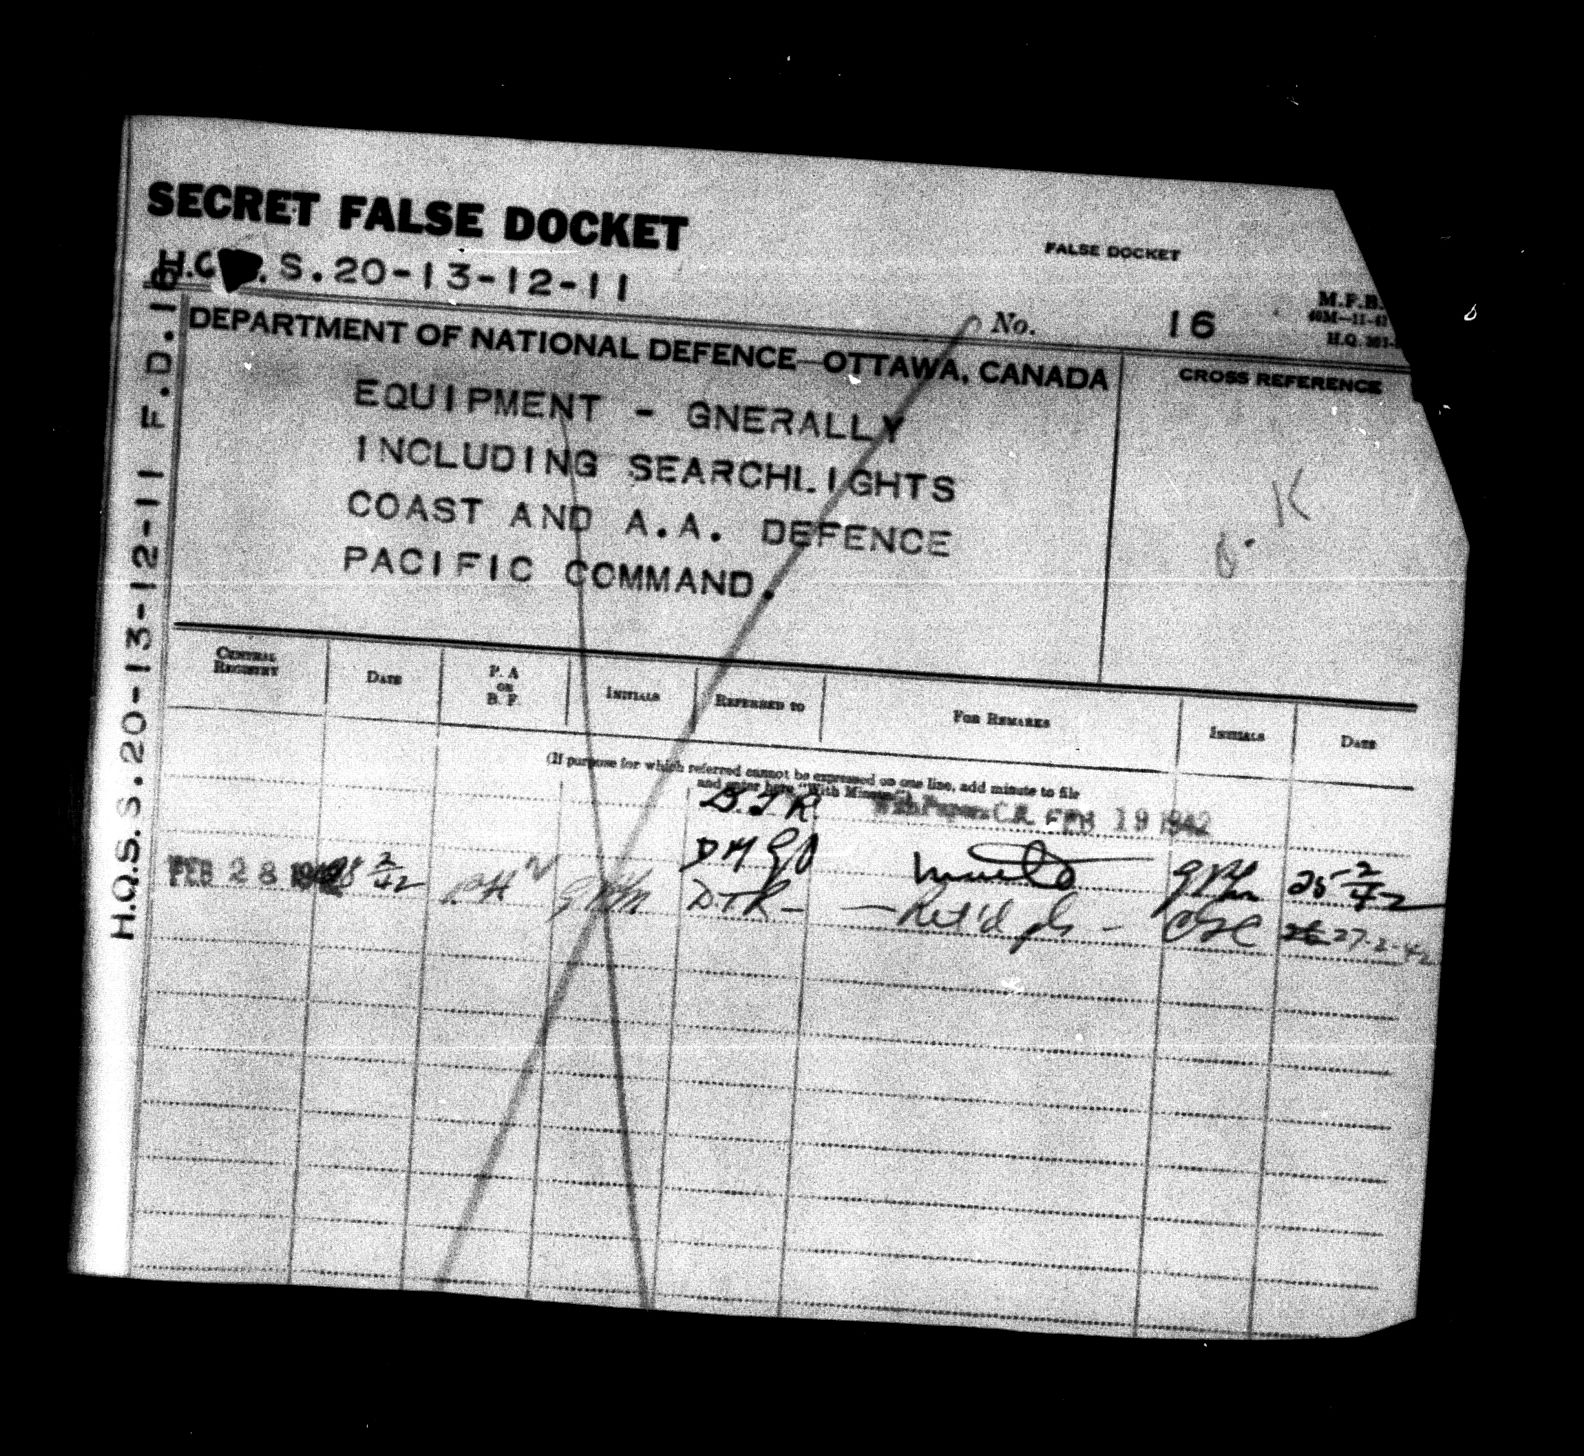 SECRET FALSE DOCKET
FALSE DOCKET
S.20-13-12-11
M.F.B.
No. 16
H.Q.
DEPARTMENT OF NATIONAL DEFENCE—OTTAWA, CANADA
CROSS REFERENCE
EQUIPMENT - GNERALLY
INCLUDING SEARCHLIGHTS
COAST AND A.A. DEFENCE
PACIFIC COMMAND.
K
H.Q.S. S.20-13-12-11 F.D.16
CENTRAL REGISTRY
DATE
P. A OR B. F.
INITIALS
REFERRED TO
FOR REMARKS
INITIALS
DATE
(If purpose for which referred cannot be expressed on one line, add minute to file
and enter here "With Minute")
D.T.R. With Papers C.R. FEB 19 1942
DMGO 25-2/42
FEB 28 1942 DTR - — Ret'd pls - 27-2-42